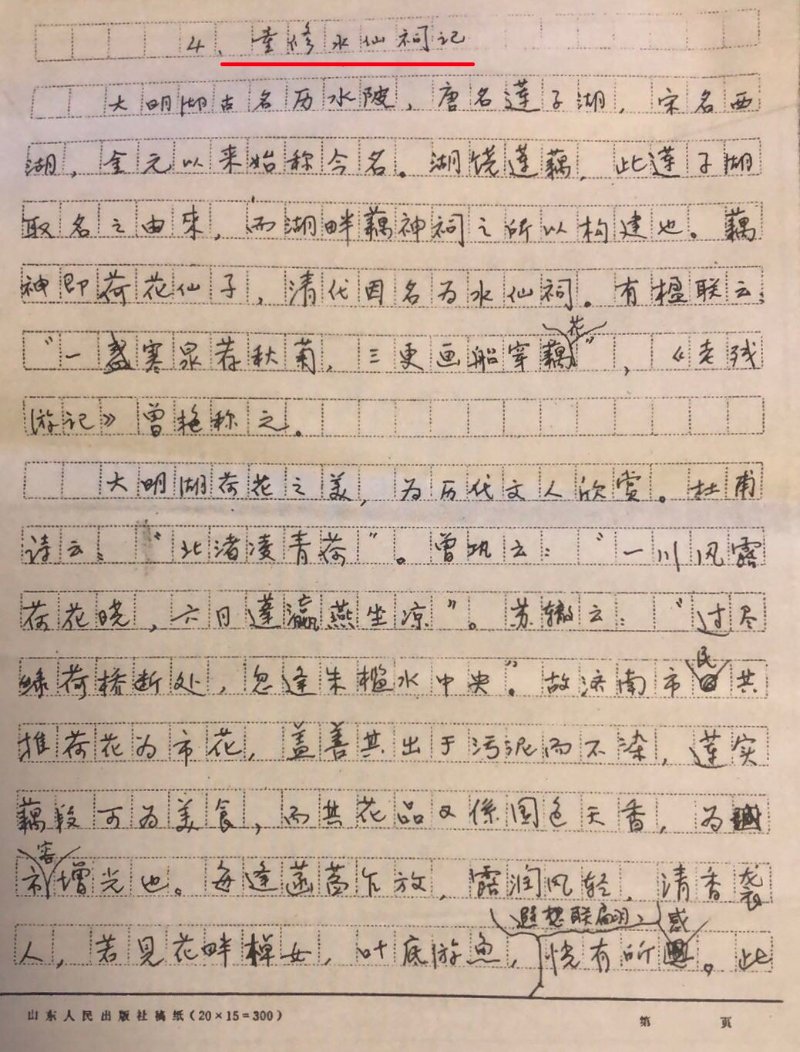 4、重修水仙祠记
大明湖古名历水陂，唐名莲子湖，宋名西
湖，金元以来始称今名。湖饶莲藕，此莲子湖
取名之由来，而湖畔藕神祠之所以构建也。藕
神即荷花仙子，清代因名为水仙祠。有楹联云：
“一盏寒泉荐秋菊，三更画船穿藕花”，《老残
游记》曾艳称之。
大明湖荷花之美，为历代文人欣赏。杜甫
诗云：“北渚凌青荷”。曾巩云：“一川风露
荷花晓，六日蓬瀛燕坐凉”。苏辙云：“过尽
绿荷桥断处，忽逢朱槛水中央”。故济南市民共
推荷花为市花，盖善其出于污泥而不染，莲实
藕段可为美食，而其花品又係国色天香，为
祠增光也。每逢菡萏乍放，露润风轻，清香袭
人，若见花畔棹女，叶底游鱼，遐想联翩，恍有所感。此
山东人民出版社稿纸(20×15=300)
第 页